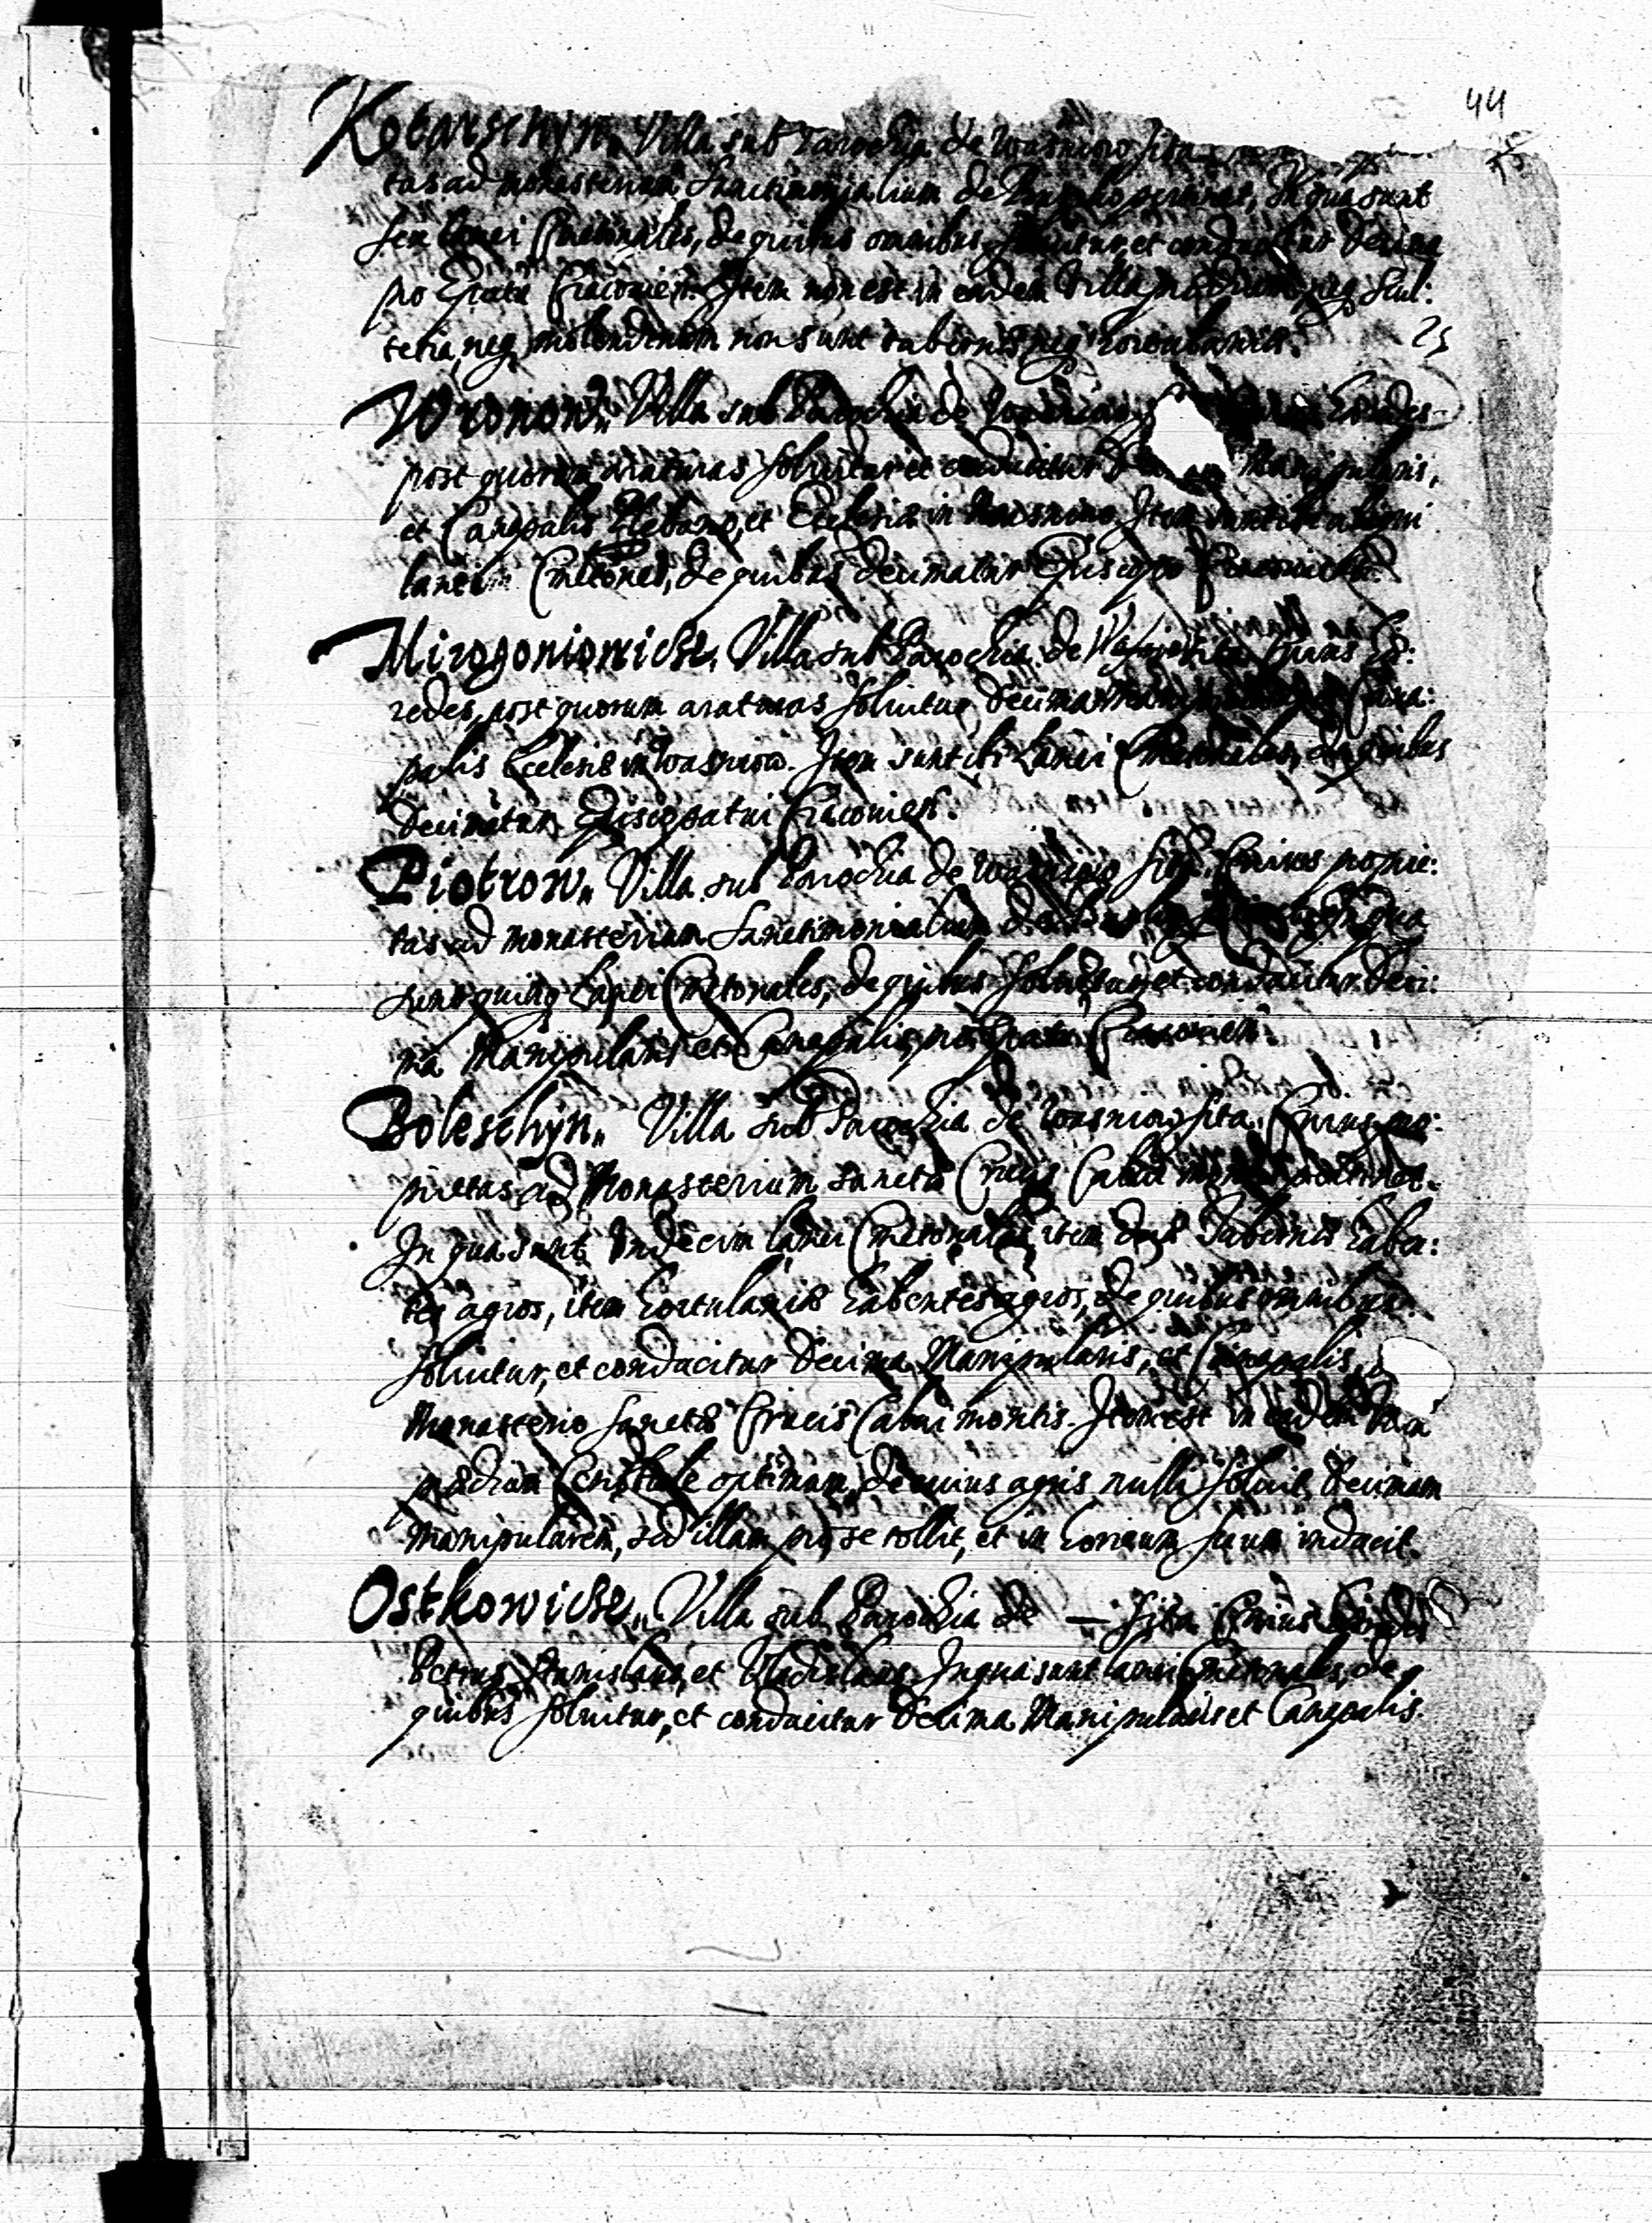 44
Kotarschyn„ Villa sub Parochia de Wasniow sita
tas ad monasterium Sanctimonialium de pertinet, In qua sunt
sex lanei Cmetonales, de quibus omnibus soluitur, et conducitur Decima
pro Epatu Cracouien. Item non est in eadem Villa prædium, neq Scul:
tetia, neq molendinum non sunt tabernæ neq hortulaniæ. 25
Wronow„ Villa sub Parochia de Wasniow Heredes
post quorum araturas soluitur et conducitur Manipularis,
et Canapalis Plebano, et Ecclesiæ in Wasniow Item sunt ibi
lanei Cmetones, de quibus decimatur Episcopo
Mirogoniowicze„ Villa sub Parochia de sita Cuius He:
redes, post quorum araturas soluitur Decima Cana:
palis Ecclesiæ in Wasniow. Item sunt ibi Lanei Cmetonales, de quibus
Decimatur Episcopatui Cracouien.
Piotrow„ Villa sub Parochia de Wasniow sita. Cuius proprie:
tas ad monasterium Sanctimonialium de In qua
sunt quinq Lanei Cmetonales, de quibus soluitur, et conducitur Deci:
ma Manipularis et Canapalis, pro Epatu Cracouien.
Boleschyn„ Villa sub Parochia de Wasniow sita. Cuius pro:
prietas ad Monasterium Sanctæ Crucis Calui montis pertinet.
In qua sunt Vndecim lanei Cmetonales, item duæ Tabernæ haben:
tes agros, item hortulaniæ habentes agros, de quibus omnibus
soluitur, et conducitur Decima Manipularis, et Canapalis,
Monasterio Sanctæ Crucis Calui montis. Item est in eadem Villa
prædium optimum, de cuius agris nulli soluit Decimam
manipularem, sed illam pro se tollit, et in horreum suum inducit.
Ostkowicze„ Villa sub Parochia de — sita Cuius Heredes
Petrus, Stanislaus, et Wladislaus. In qua sunt lanei Cmetonales, de
quibus soluitur, et conducitur Decima Manipularis et Canapalis.